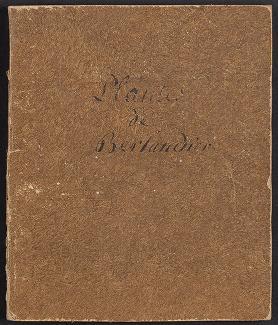 Plantes
de
Berlandier